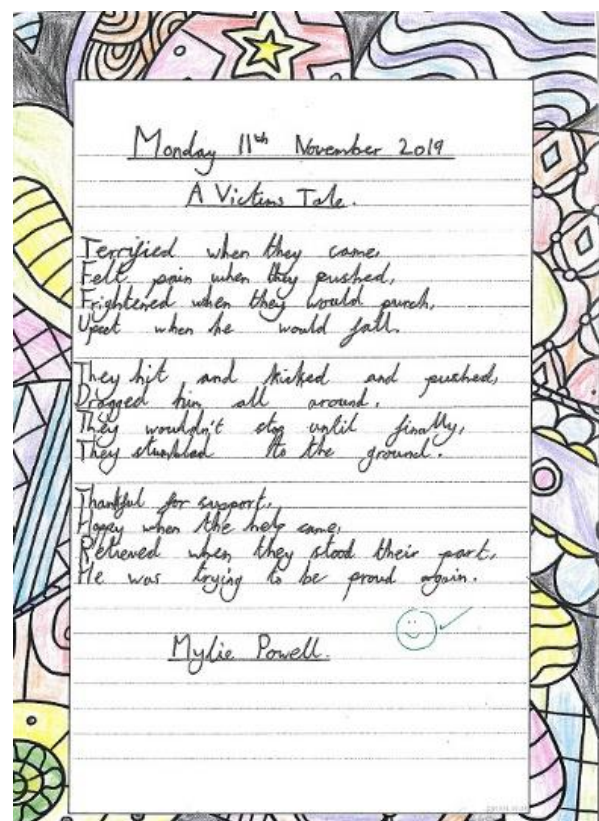 Monday 11th November 2019
A Victims Tale.
Terrified when they came,
Felt pain when they pushed,
Frightened when they would punch,
Upset when he would fall.
They hit and kicked and pushed,
Dragged him all around.
They wouldn't stop until finally,
They stumbled to the ground.
Thankful for support,
Happy when the help came,
Relieved when they stood their part,
He was trying to be proud again.
Mylie Powell.